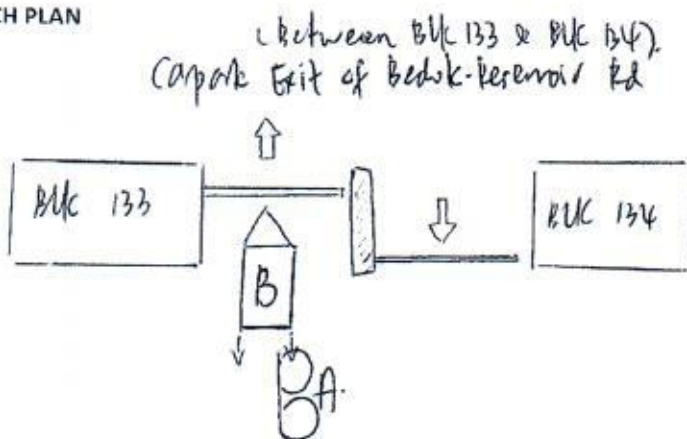 CH PLAN
(Between Blk 133 & Blk 134).
Carpark Exit of Bedok-Reservoir Rd
Blk 133
Blk 134
B
A.